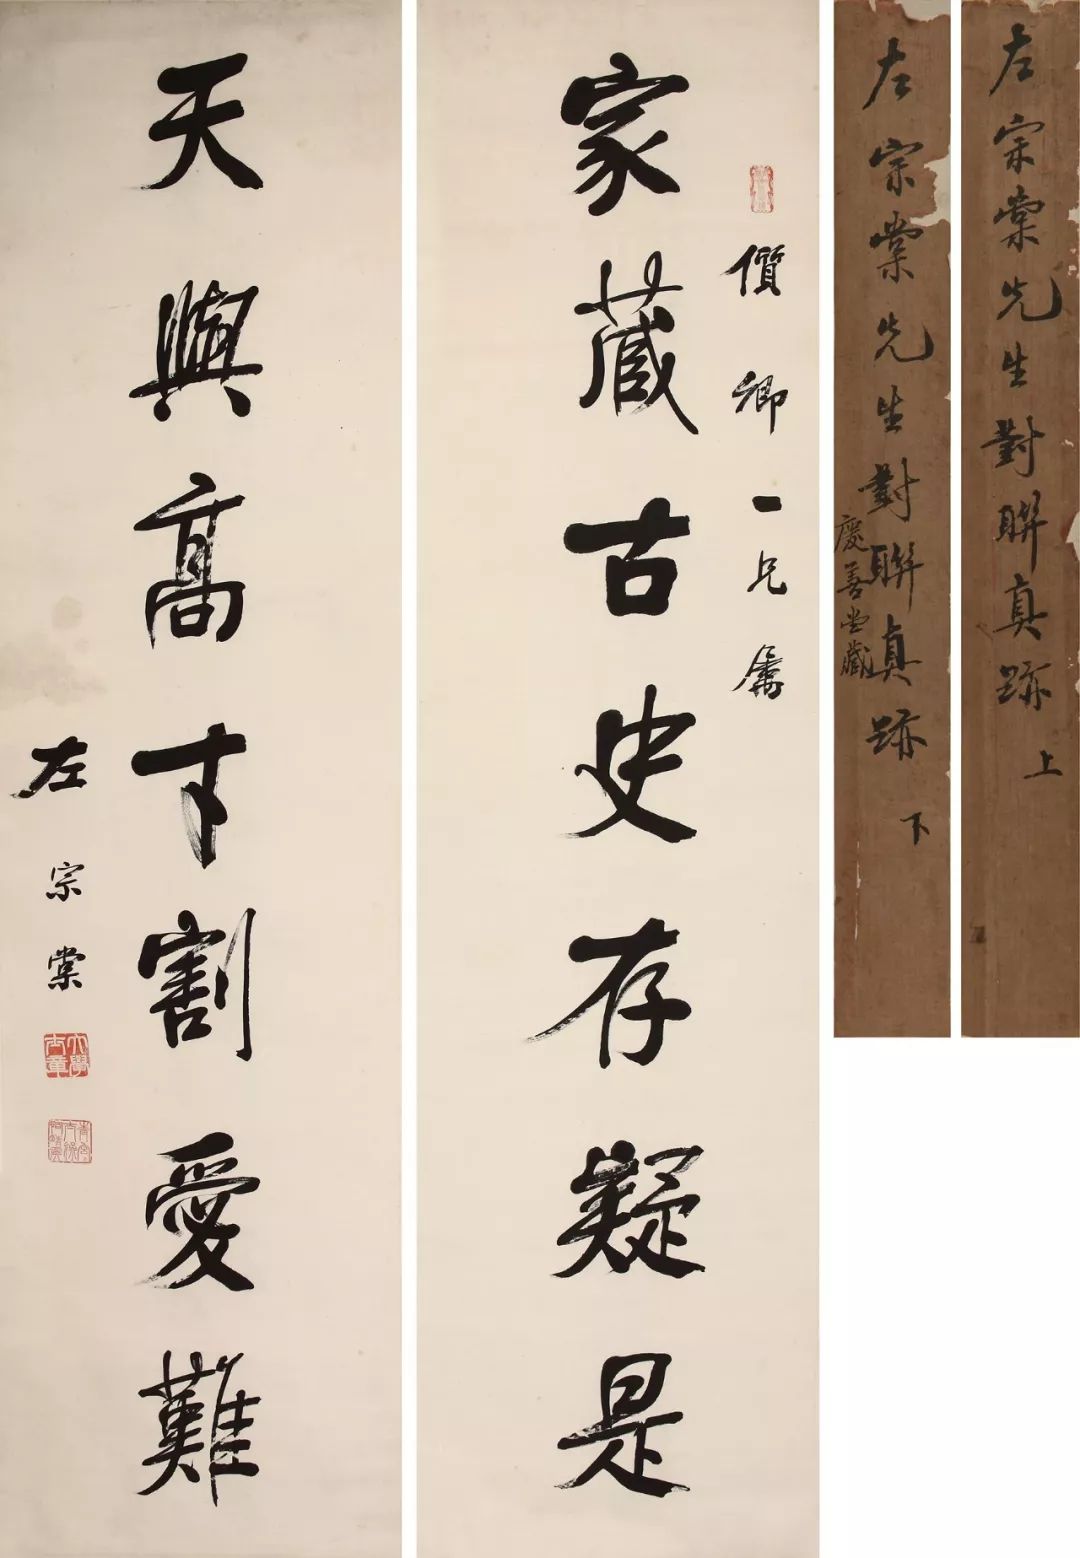 左宗棠先生對聯真跡 上
左宗棠先生對聯真跡 下
慶善堂藏
儨卿一兄屬
家藏古史存疑是
天與高才割愛難
左宗棠
大學士章